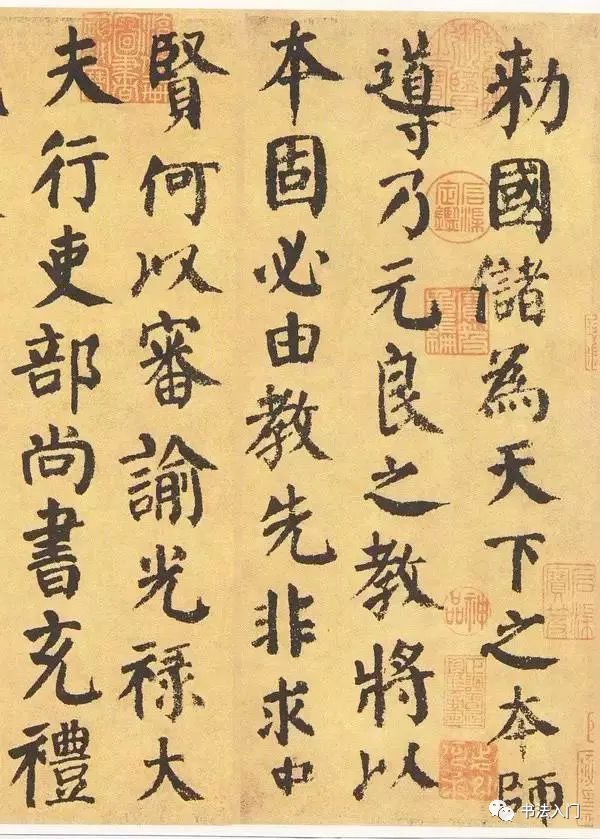 勅國儲為天下之本師
導乃元良之教將以
本固必由教先非求中
賢何以審諭光祿大
夫行吏部尚書充禮
神品
书法入门